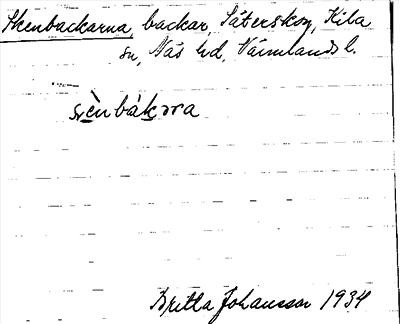 Skenbackarna, backar, Säterskog, Kila
sn, Näs hd, Värmlands l.
svènbàkɔra
Britta Johansson 1934